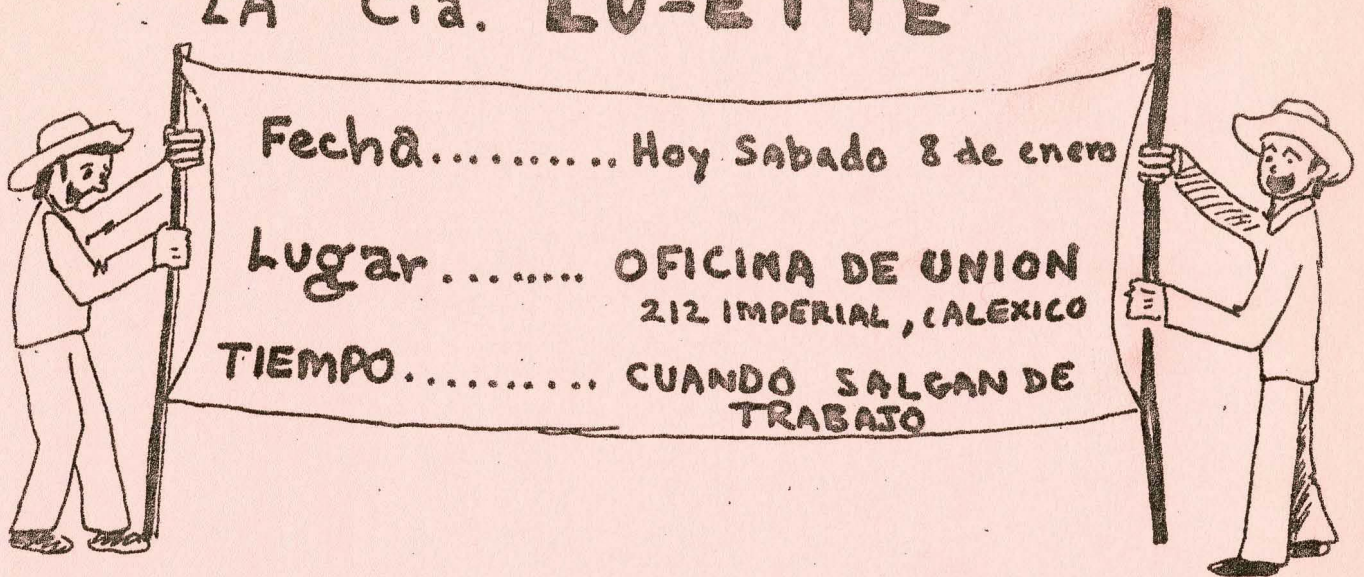 LA Cia. LU-ETTE
Fecha.......... Hoy Sabado 8 de enero
Lugar........ OFICINA DE UNION
212 IMPERIAL, CALEXICO
TIEMPO.......... CUANDO SALGAN DE
TRABAJO